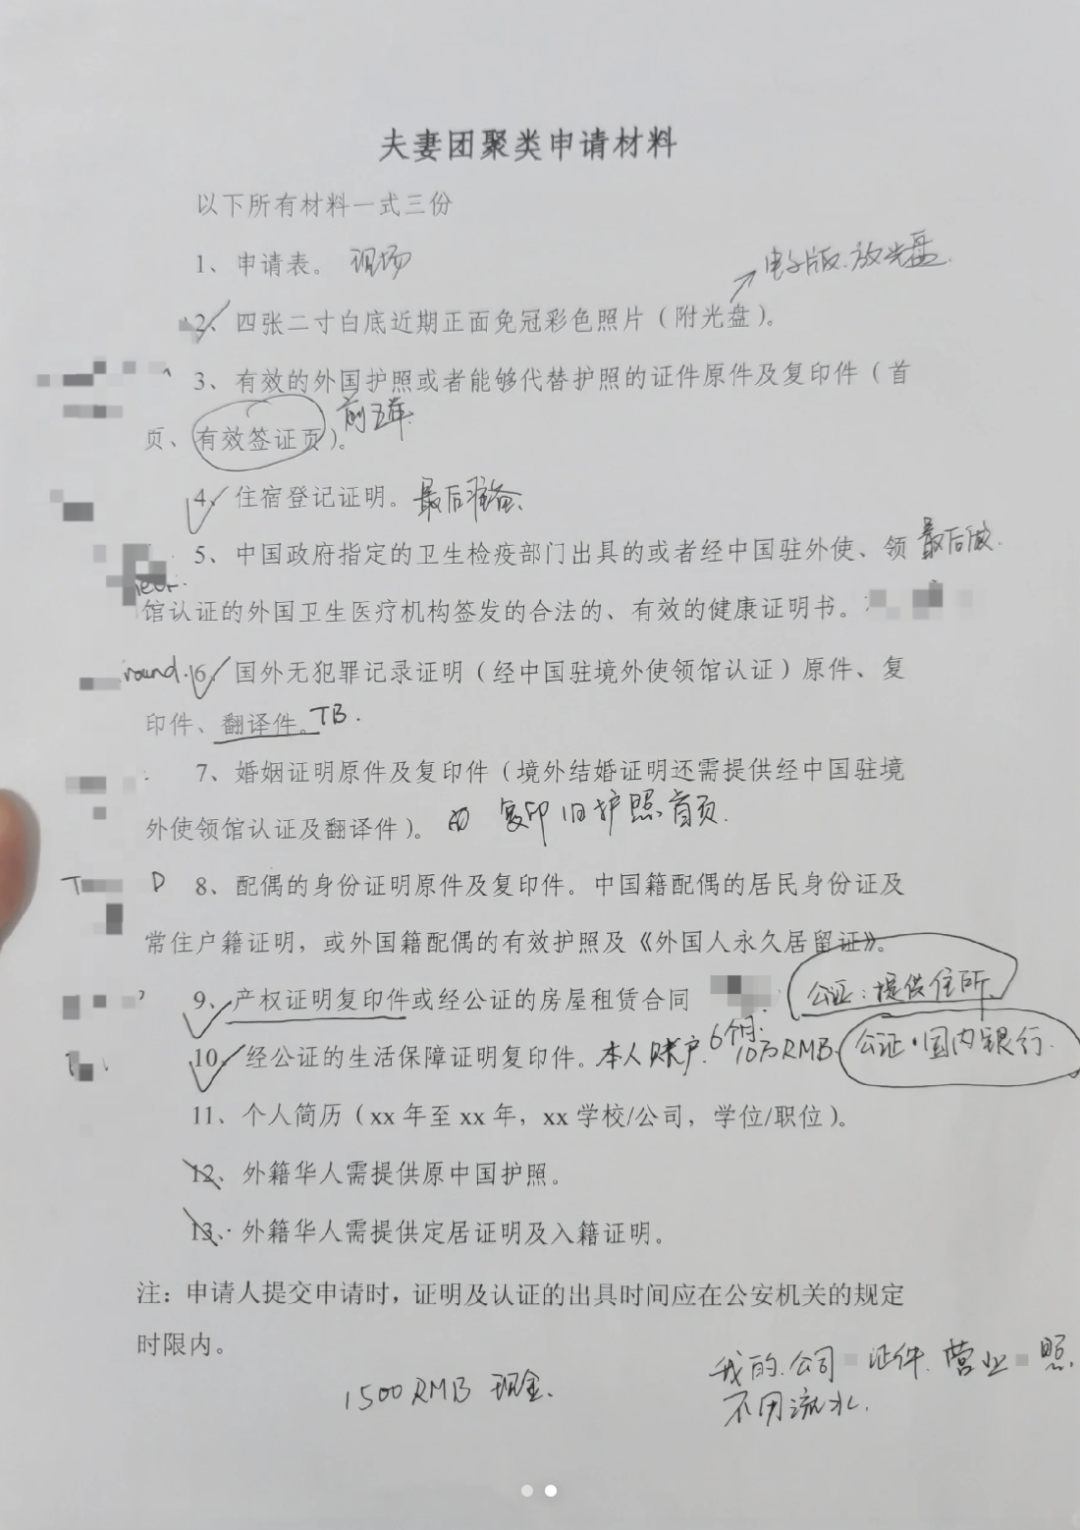 夫妻团聚类申请材料
以下所有材料一式三份
1、申请表。 现场
电子版.放光盘.
2、四张二寸白底近期正面免冠彩色照片（附光盘）。
3、有效的外国护照或者能够代替护照的证件原件及复印件（首
页、有效签证页）。前五年.
4、住宿登记证明。最后准备.
5、中国政府指定的卫生检疫部门出具的或者经中国驻外使、领 最后做.
馆认证的外国卫生医疗机构签发的合法的、有效的健康证明书。
round. 6、国外无犯罪记录证明（经中国驻境外使领馆认证）原件、复
印件、翻译件。TB.
7、婚姻证明原件及复印件（境外结婚证明还需提供经中国驻境
外使领馆认证及翻译件）。 复印旧护照首页.
T D 8、配偶的身份证明原件及复印件。中国籍配偶的居民身份证及
常住户籍证明，或外国籍配偶的有效护照及《外国人永久居留证》。
9、产权证明复印件或经公证的房屋租赁合同 公证:提供住所.
10、经公证的生活保障证明复印件。本人账户. 6个月. 10万RMB. 公证·国内银行.
11、个人简历（xx 年至 xx 年，xx 学校/公司，学位/职位）。
12、外籍华人需提供原中国护照。
13、外籍华人需提供定居证明及入籍证明。
注：申请人提交申请时，证明及认证的出具时间应在公安机关的规定
时限内。
1500RMB 现金.
我的.公司 证件.营业 照.
不用流水.